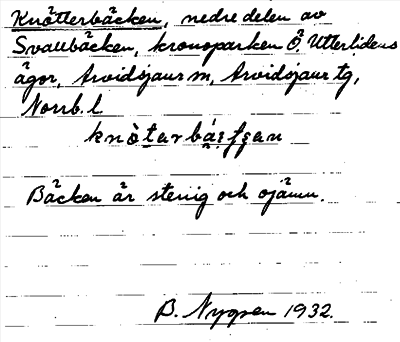 Knötterbäcken, nedre delen av
Svallbäcken, kronoparken Ö. Utterlidens
ägor, Arvidsjaur sn, Arvidsjaur tg,
Norrb. l
Bäcken är stenig och ojämn.
B. Nygren 1932.